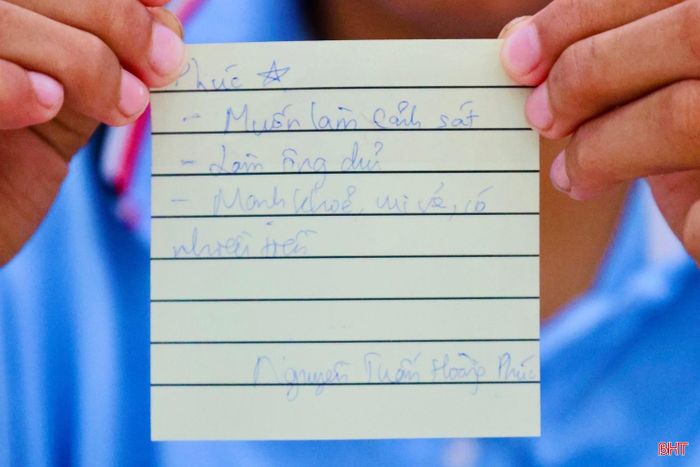 Phúc ☆
- Muốn làm cảnh sát
- Làm ông chủ
- Mạnh khoẻ, vui vẻ, có
nhiều tiền
Nguyễn Tuấn Hoàng Phúc
BHT